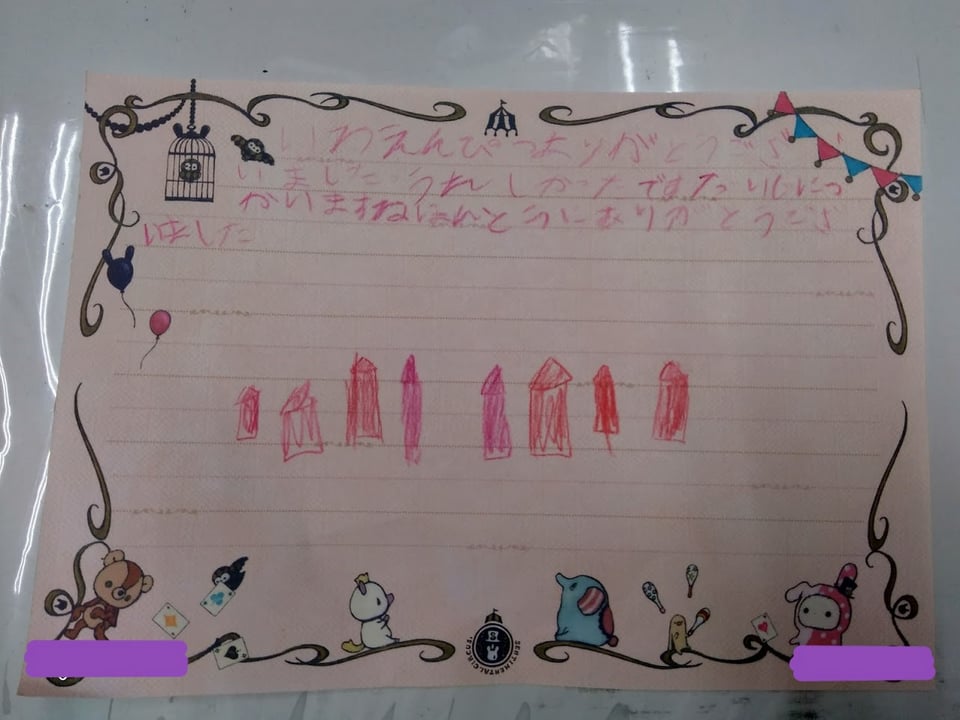 いわえんぴつありがとうござ
いました うれしかったです たいじにつ
かいますねほんとうにありがとうござ
いました
SENTIMENTAL CIRCUS